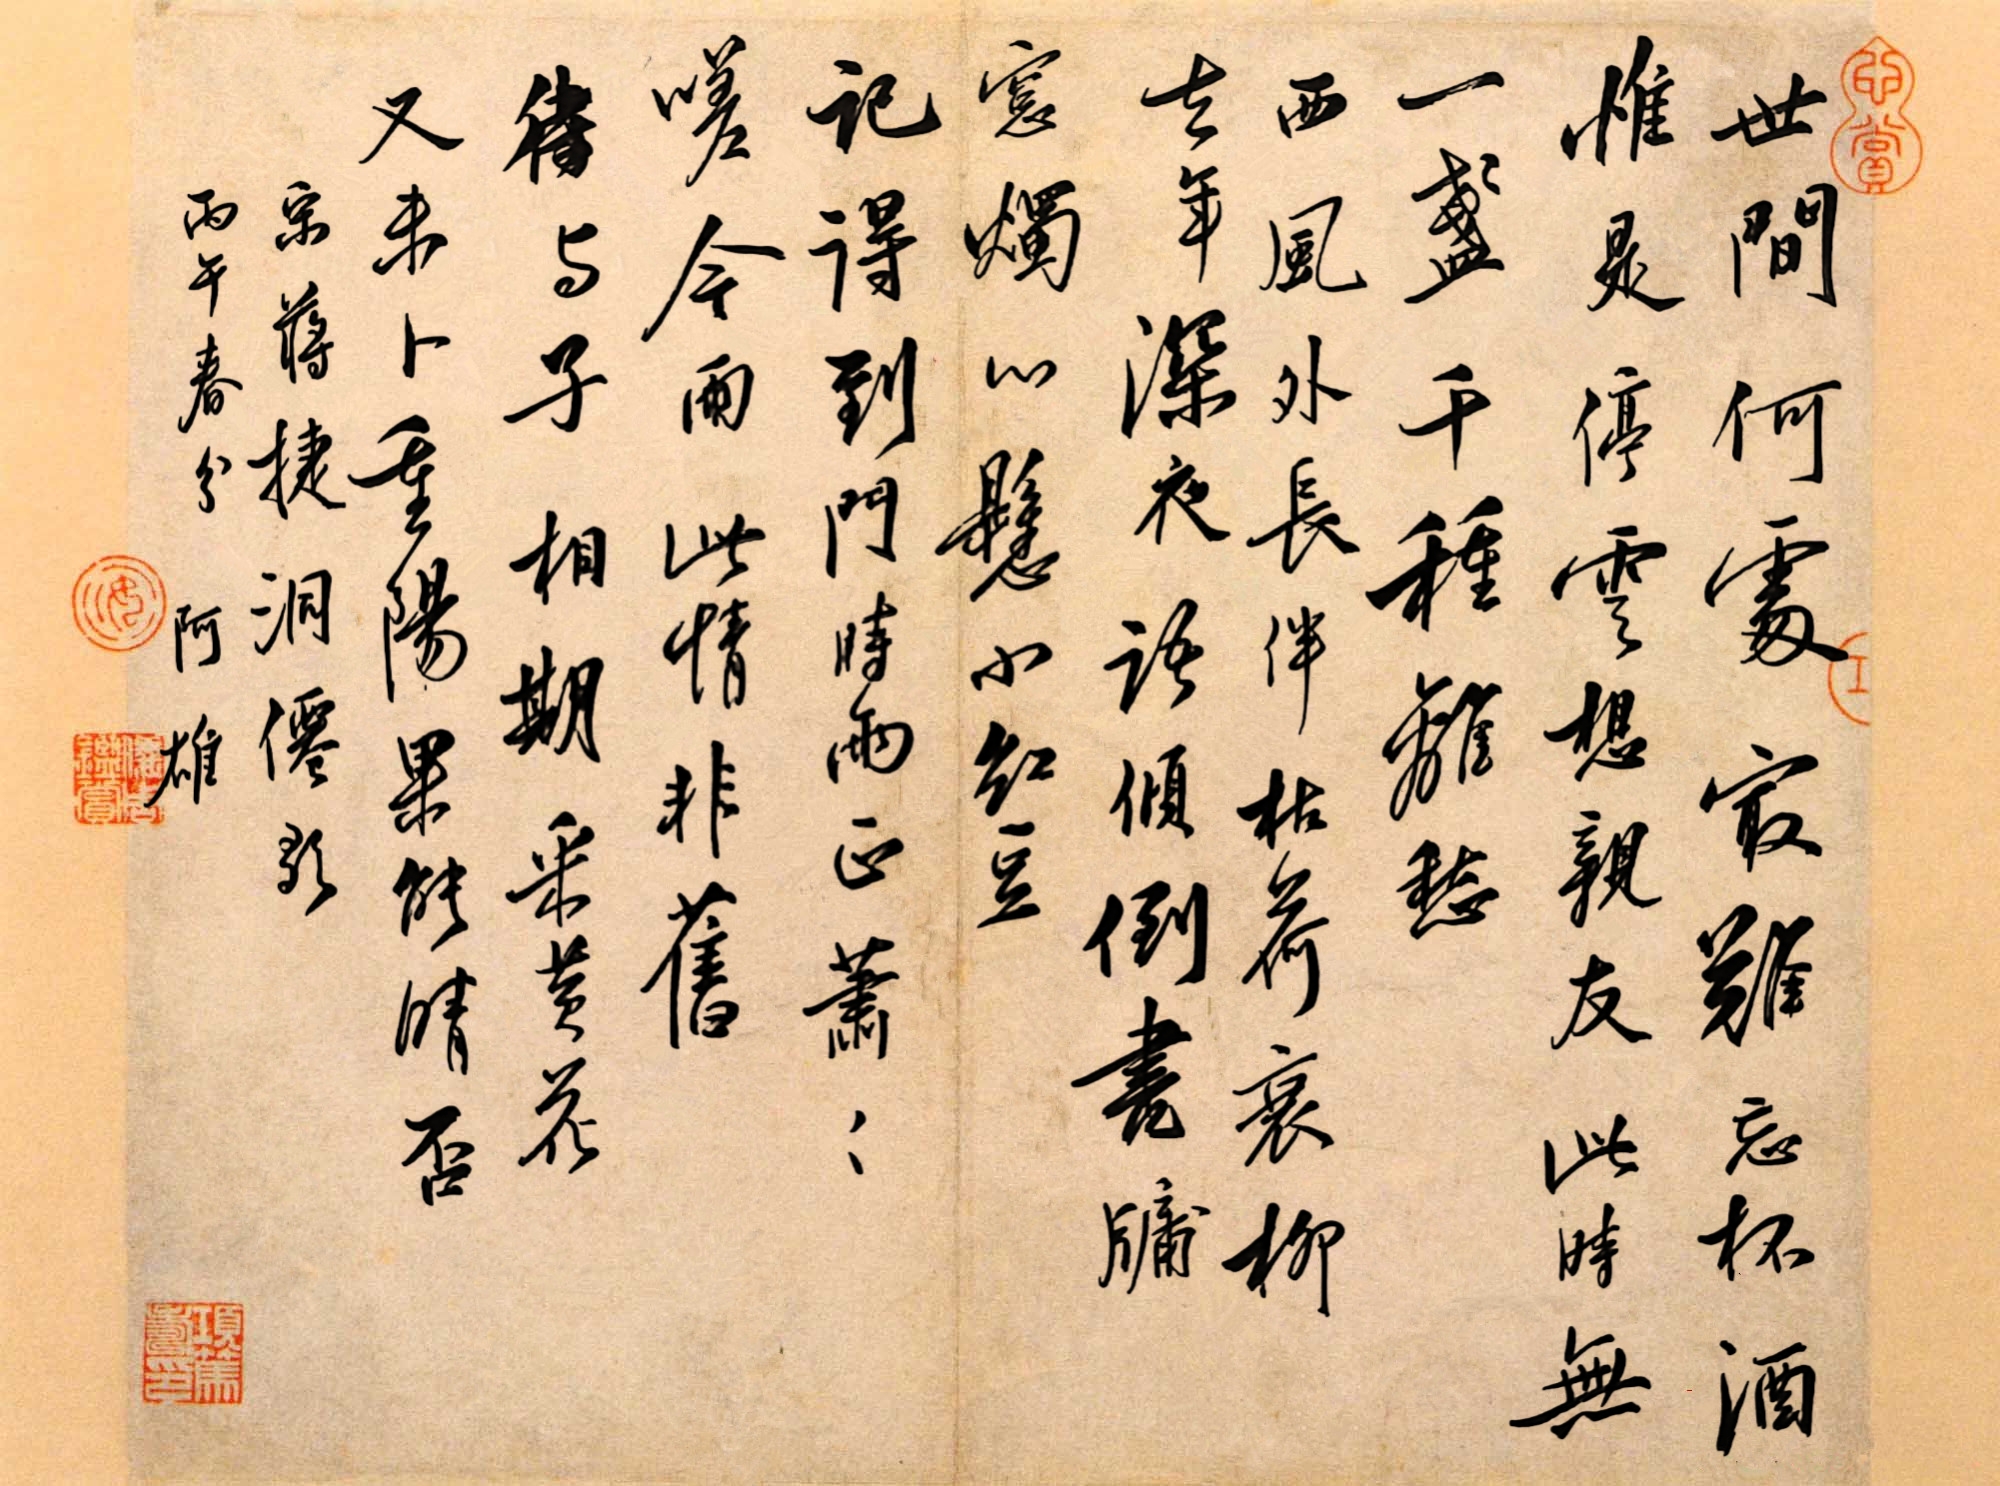 世間何處最難忘杯酒
惟是停雲想親友此時無
一盞千種離愁
西風外長伴枯荷衰柳
去年深夜語傾倒書牖
窓燭心懸小紅豆
記得到門時雨正蕭〻
嗟今雨此情非舊
待与子相期采黃花
又未卜重陽果能晴否
宋蔣捷洞僊歌
丙午春分 阿雄
項篤壽印